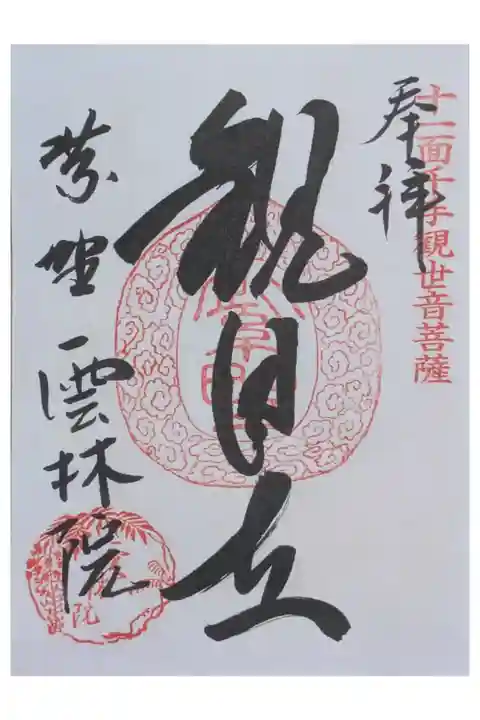 奉拝
十一面千手観世音菩薩
観自在
紫野 雲林院
院